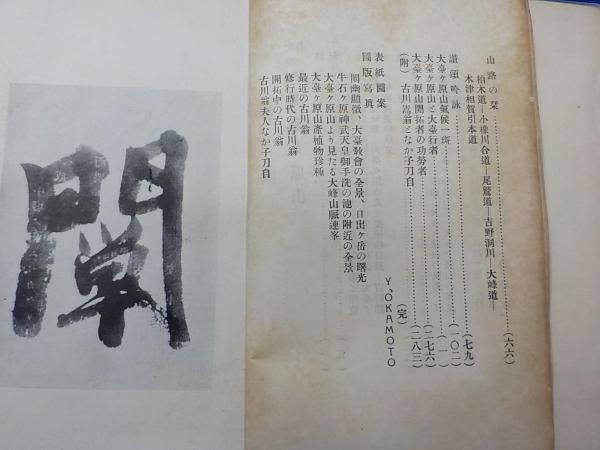 山路の栞……(六六)
柏木道—小橡川合道—尾鷲道—吉野洞川—大峰道—
木津相賀引本道……(七九)
讃頌吟詠……(一〇二)
大臺ケ原山氣候一班……(一)
大臺ケ原山と大臺行者……(二七六)
大臺ケ原山開拓者の功勞者……(二八三)
(附) 古川嵩翁となか子刀自……(完)
表紙圖案 Y,OKAMOTO
圖版寫眞
闡幽顯微、大臺敎會の全景、日出ケ岳の曙光
牛石ケ原神武天皇御手洗の池の附近の全景
大臺ケ原山より見たる大峰山脈連峯
大臺ケ原山產植物珍種
最近の古川翁
修行時代の古川翁
開拓中の古川翁
古川翁夫人なか子刀自
闡